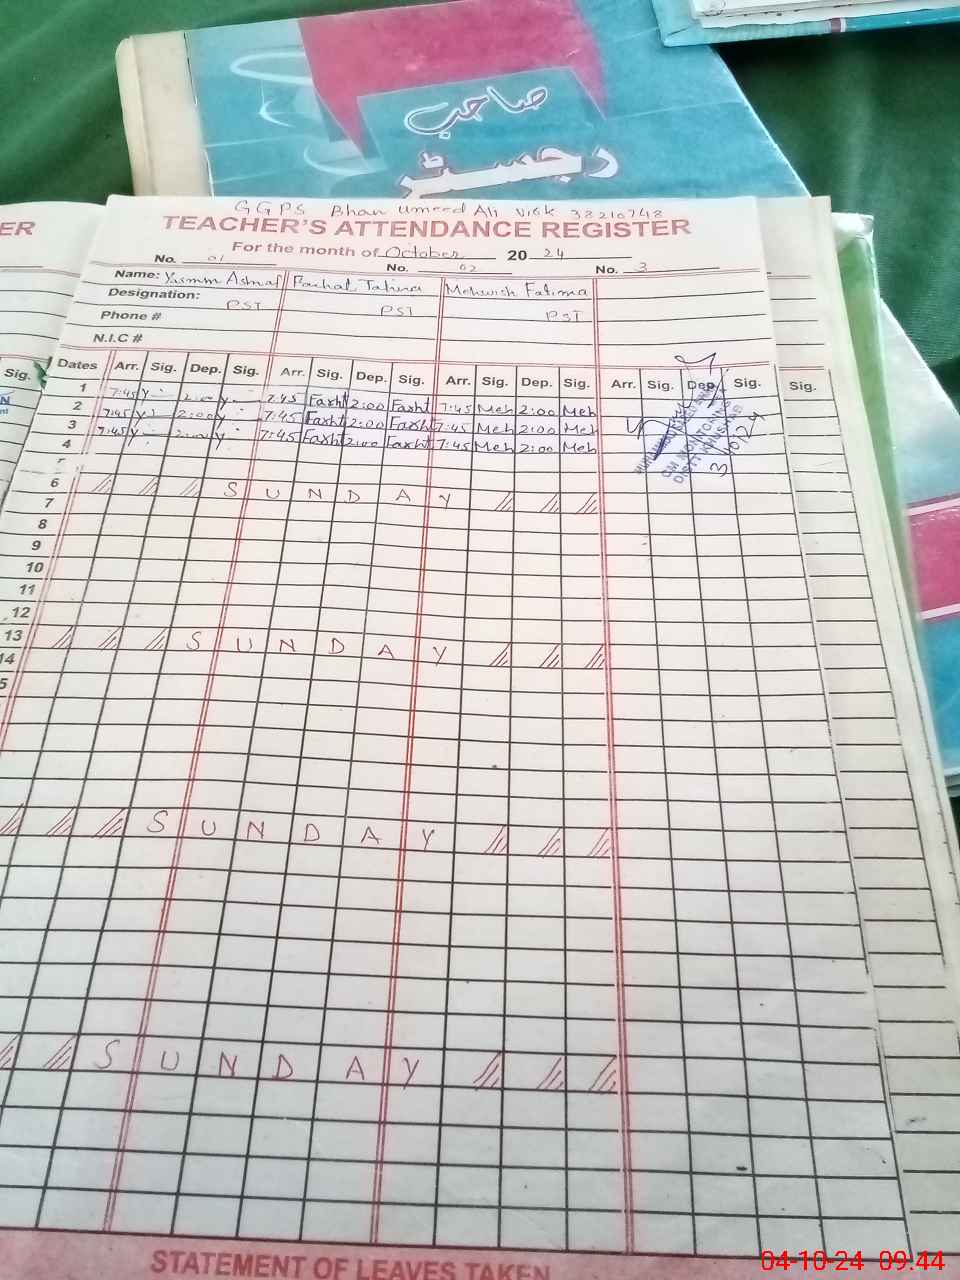 صاحب
رجسٹر
ER
GGPS Bhan Umeed Ali
TEACHER'S ATTENDANCE REGISTER
For the month of October 2024
No. 01 No. 02 No. 3
Name: Farhat Tahira Mehwish Fatima
Designation: PST PST PST
Phone #
N.I.C #
Sig. Dates Arr. Sig. Dep. Sig. Arr. Sig. Dep. Sig. Arr. Sig. Dep. Sig. Arr. Sig. Dep. Sig. Sig.
1 7:45 2:00 7:45 Farht 2:00 Farht 7:45 Meh 2:00 Meh
2 7:45 2:00 7:45 Farht 2:00 Farht 7:45 Meh 2:00 Meh
3 7:45 2:00 7:45 Farht 2:00 Farht 7:45 Meh 2:00 Meh
4
5
6 SUNDAY
7
8
9
10
11
12
13 SUNDAY
14
5
SUNDAY
SUNDAY
STATEMENT OF LEAVES TAKEN
04-10-24 09:44